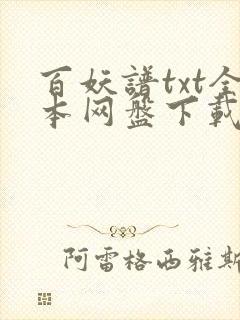 百妖譜txt全
本网盘下載
阿雷格西雅斯